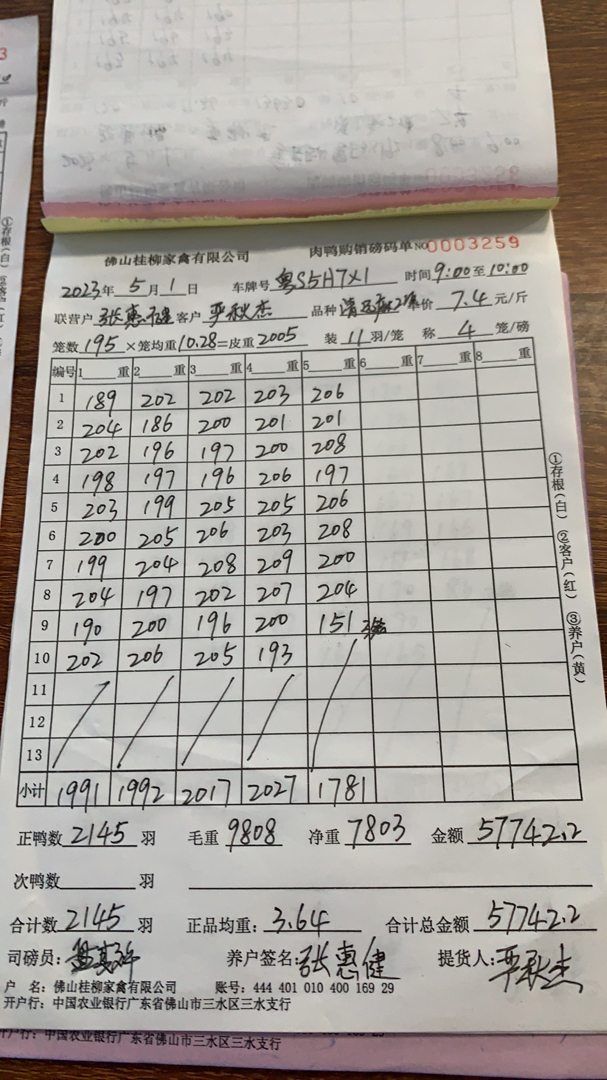 佛山桂柳家禽有限公司 肉鸭购销磅码单 NO 0003259
2023年 5 月 1 日 车牌号 粤S5H7X1 时间 9:00至10:00
联营户 张惠健 客户 严秋杰 品种 单价 7.4 元/斤
笼数 195 ×笼均重 10.28 =皮重 2005 装 11 羽/笼 称 4 笼/磅
编号 1 重 2 重 3 重 4 重 5 重 6 重 7 重 8 重
1 189 202 202 203 206
2 204 186 200 201 201
3 202 196 197 200 208
4 198 197 196 206 197
5 203 199 205 205 206
6 200 205 206 203 208
7 199 204 208 209 200
8 204 197 202 207 204
9 190 200 196 200 151
10 202 206 205 193
11
12
13
小计 1991 1992 2017 2027 1781
正鸭数 2145 羽 毛重 9808 净重 7803 金额 57742.2
次鸭数 羽
合计数 2145 羽 正品均重: 3.64 合计总金额 57742.2
司磅员: 养户签名: 张惠健 提货人: 严秋杰
户 名: 佛山桂柳家禽有限公司 账号: 444 401 010 400 169 29
开户行: 中国农业银行广东省佛山市三水区三水支行
①存根(白) ②客户(红) ③养户(黄)
开户行: 中国农业银行广东省佛山市三水区三水支行